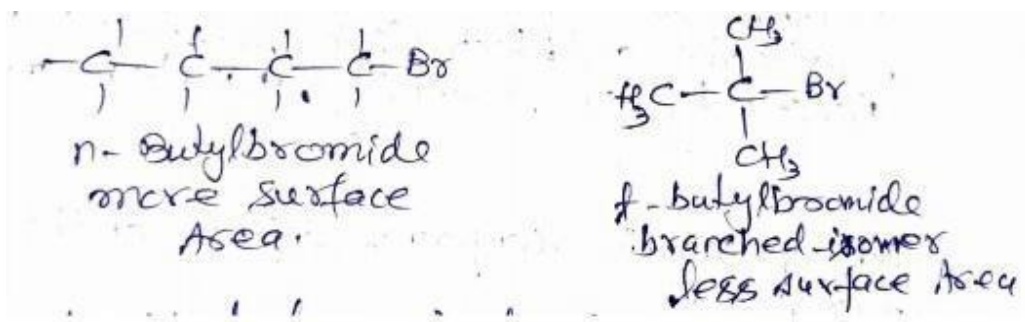 C — C — C — C — Br
n- Butylbromide
more surface
Area.
CH3
H3C — C — Br
CH3
t-butylbromide
branched isomer
less surface Area